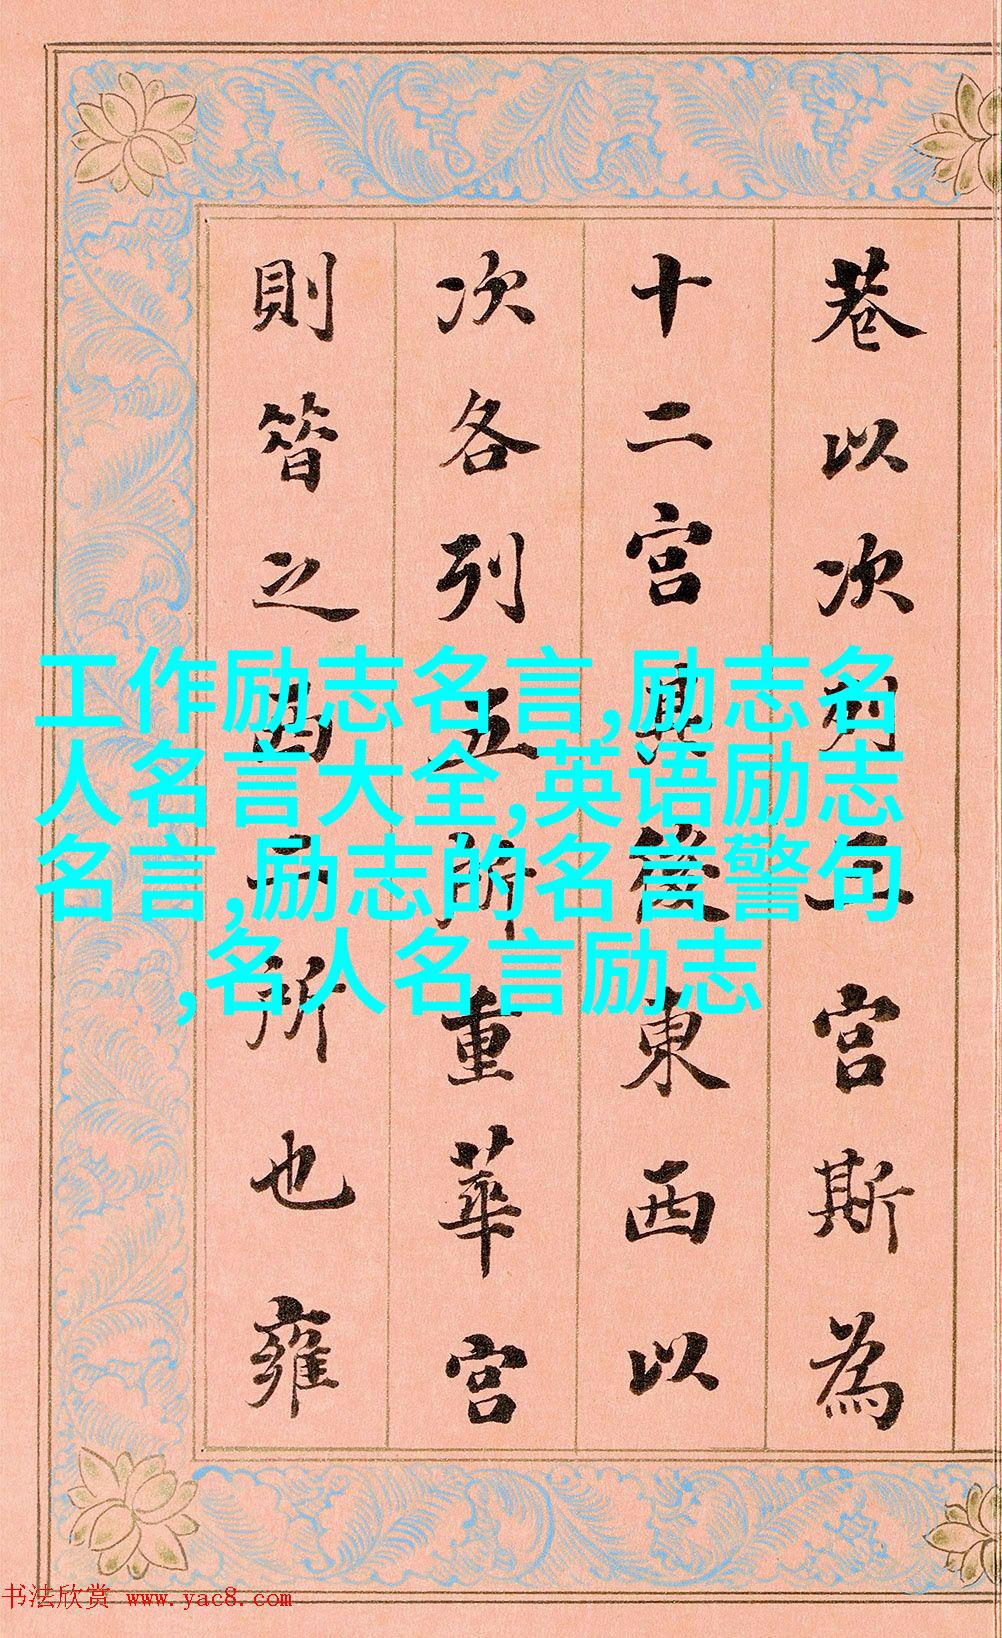 巷以次列五宮斯為
十二宮其後東西以
次各列五所重華宮
則昔之西五所也雍
工作励志名言,励志名
人名言大全,英语励志
名言,励志的名言警句
,名人名言励志
书法欣赏 www.yac8.com